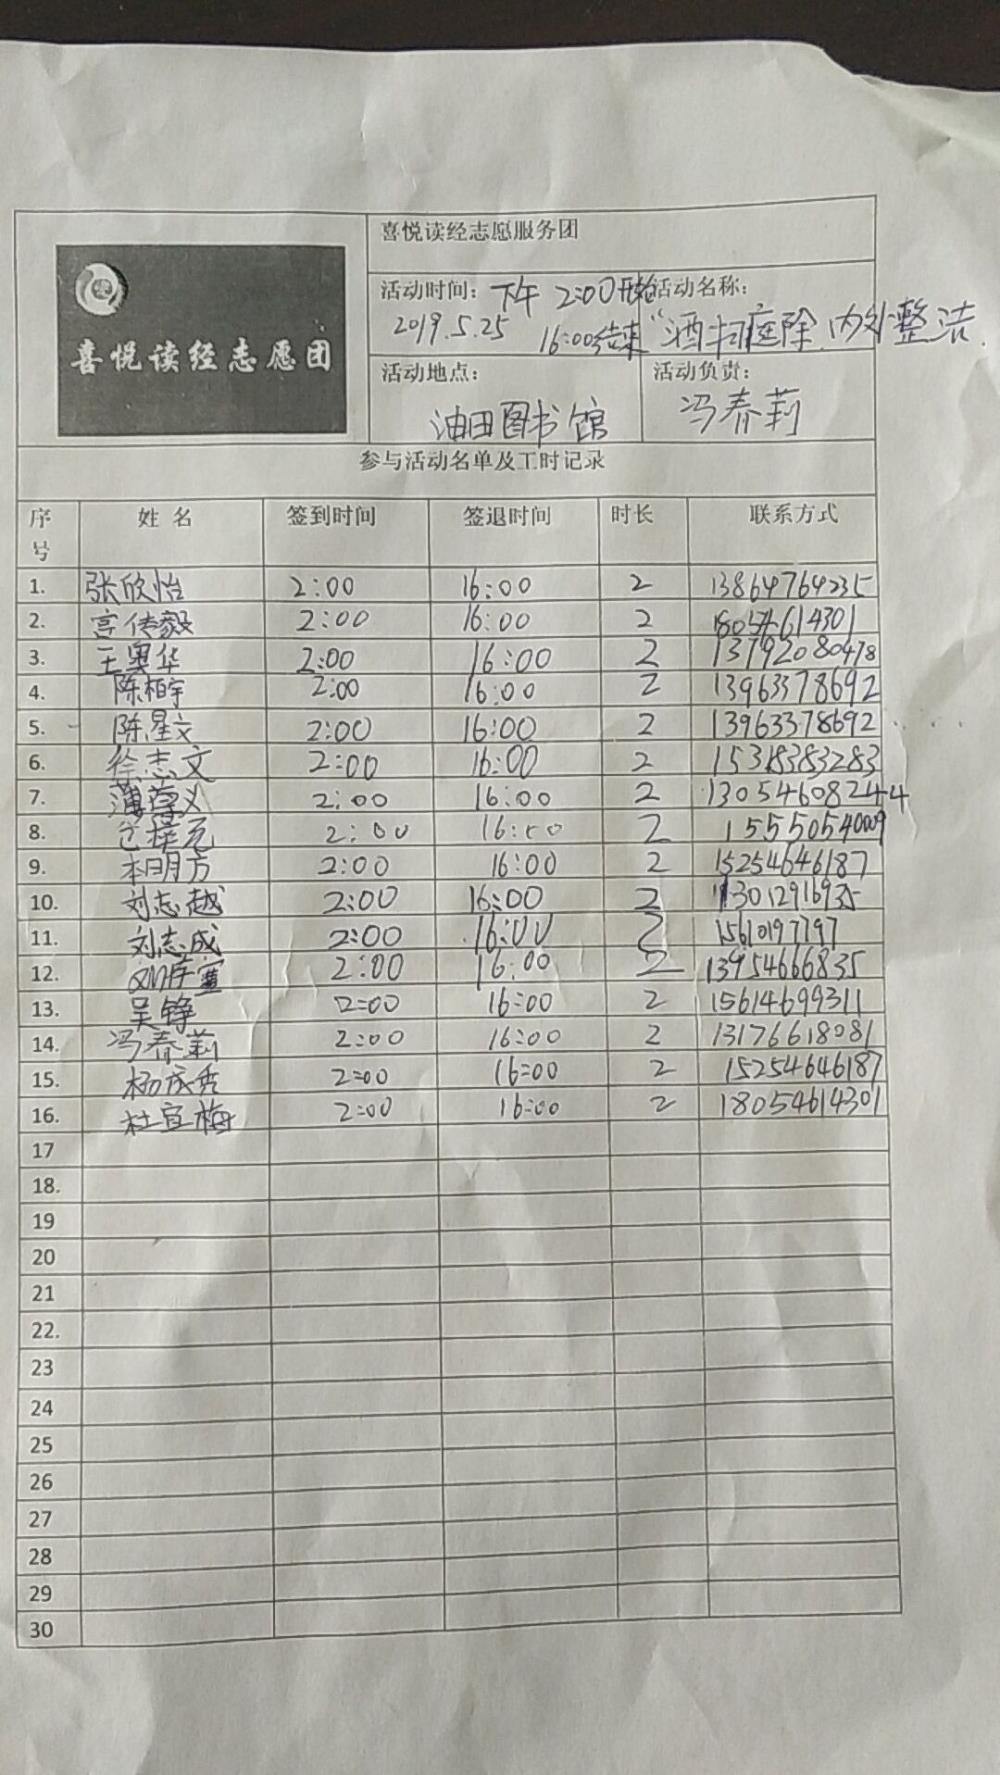 喜悦读经志愿团
喜悦读经志愿服务团
活动时间：下午 2:00开始
2019.5.25 16:00结束
活动名称：
"洒扫庭除，内外整洁
活动地点：
油田图书馆
活动负责：
冯春莉
参与活动名单及工时记录
序号 姓名 签到时间 签退时间 时长 联系方式
1. 张欣怡 2:00 16:00 2 13864764235
2. 宫传毅 2:00 16:00 2 18054614301
3. 王奥华 2:00 16:00 2 13792080478
4. 陈柏宇 2:00 16:00 2 13963378692
5. 陈星文 2:00 16:00 2 13963378692
6. 徐志文 2:00 16:00 2 15318383283
7. 2:00 16:00 2 13054608244
8. 2:00 16:00 2 15550540009
9. 本明方 2:00 16:00 2 15254646187
10. 刘志越 2:00 16:00 2 13012916935
11. 刘志成 2:00 16:00 2 15610197797
12. 2:00 16:00 2 13954666835
13. 吴铮 2:00 16:00 2 15614699311
14. 冯春莉 2:00 16:00 2 13176618081
15. 杨庆秀 2:00 16:00 2 15254646187
16. 杜宜梅 2:00 16:00 2 18054614301
17
18.
19
20
21
22.
23
24
25
26
27
28
29
30